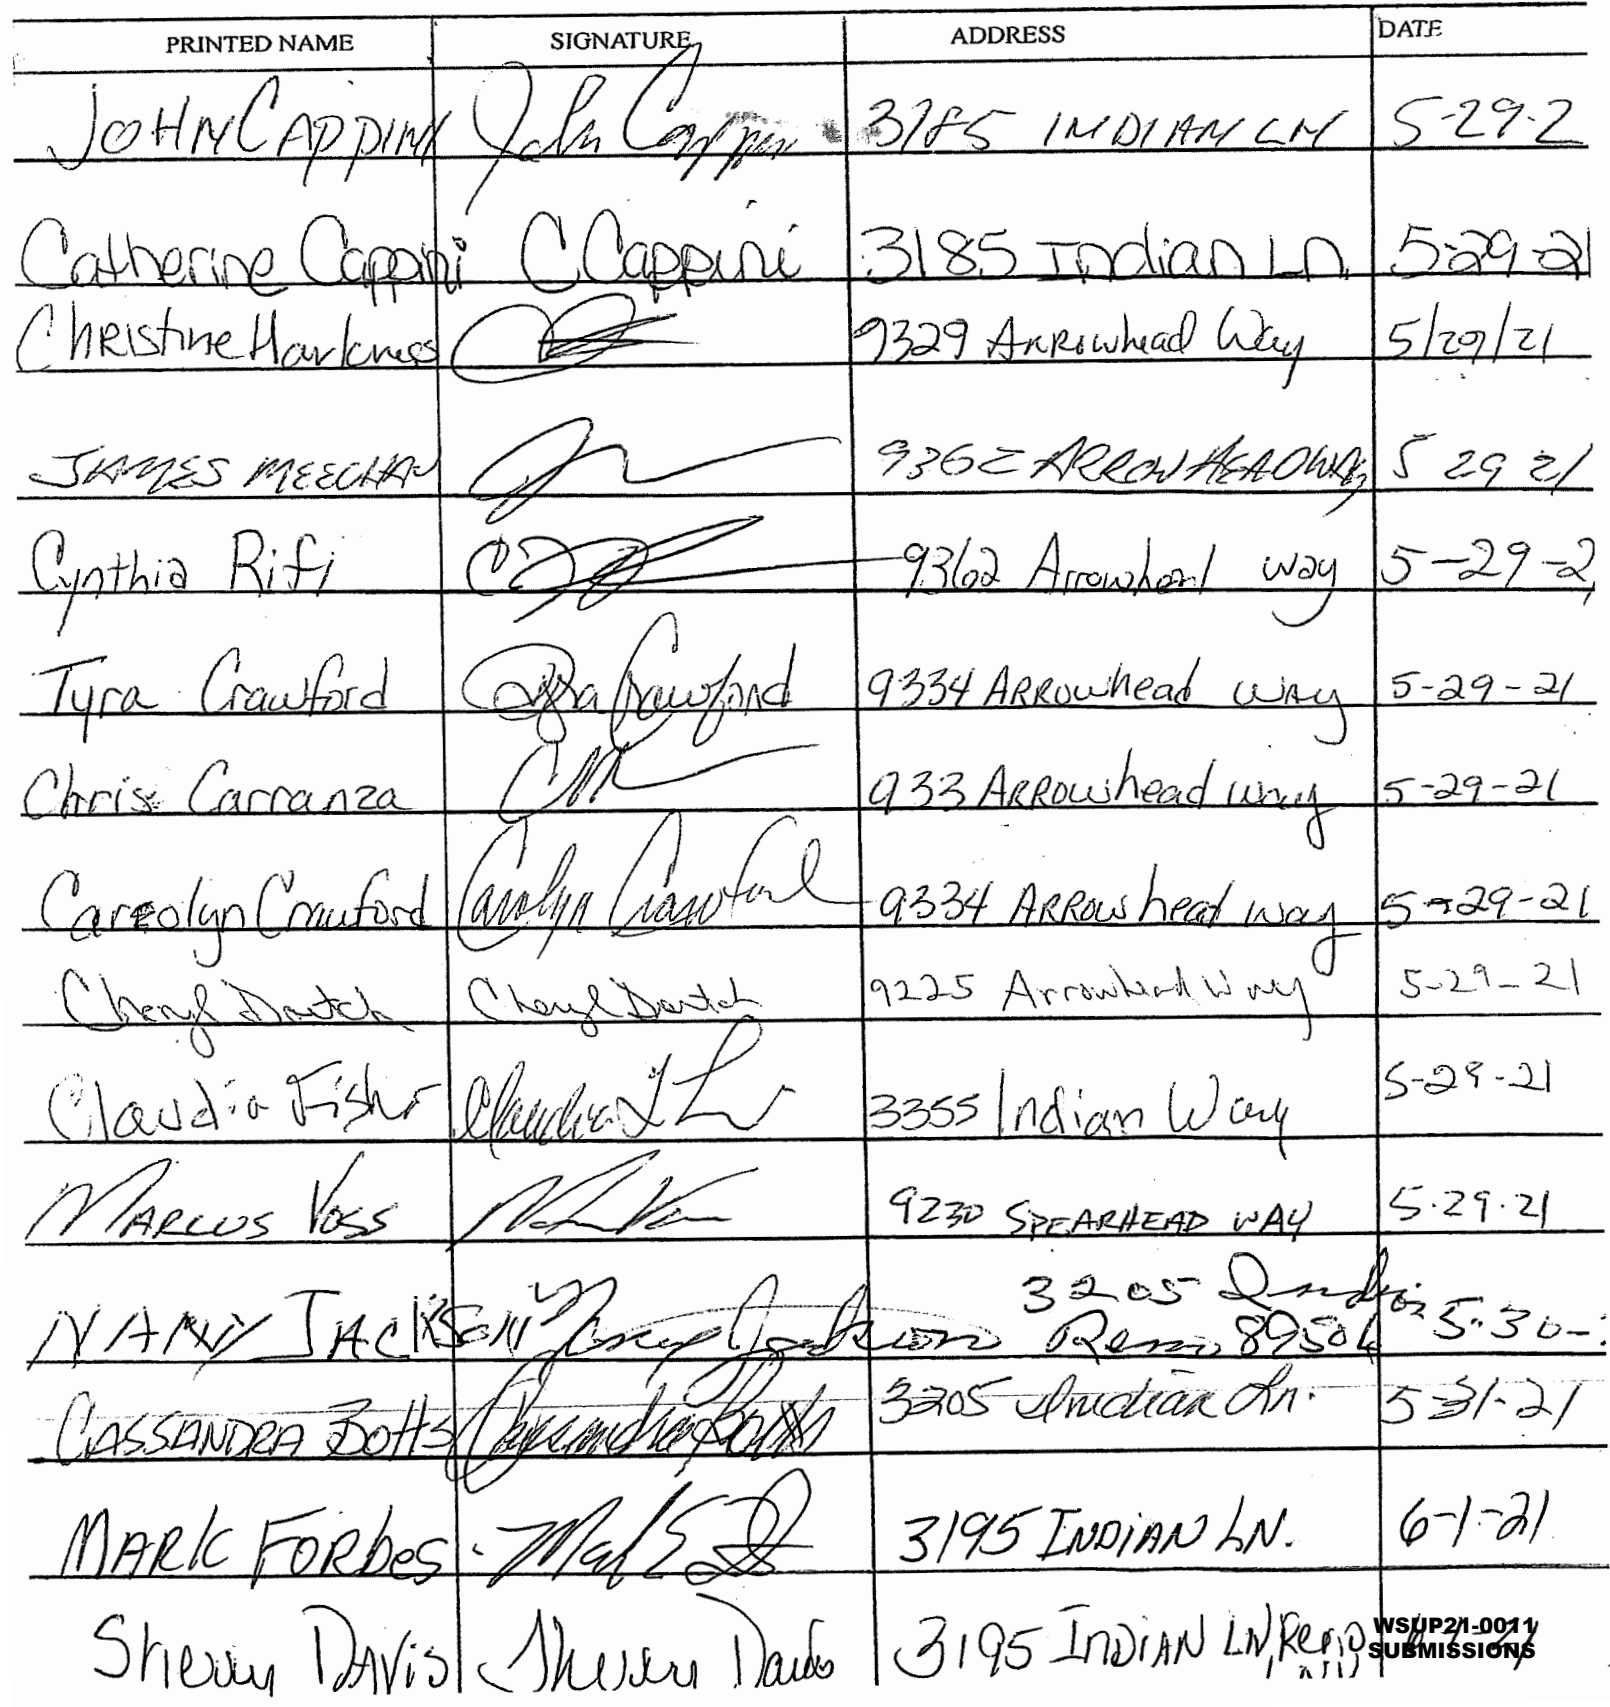 PRINTED NAME SIGNATURE ADDRESS DATE
JOHN CAPPINI John Cappini 3185 INDIAN LN 5-29-2
Catherine Cappini C Cappini 3185 Indian LN. 5-29-21
Christine Harkness 9329 Arrowhead Way 5/29/21
JAMES MEECHAN 9362 ARROWHEAD WAY 5 29 21
Cynthia Rifi 9362 Arrowhead way 5-29-2
Tyra Crawford Tyra Crawford 9334 ARROwhead WAy 5-29-21
Chris Carranza 933 ARROwshead way 5-29-21
Careolyn Crawford Carolyn Crawford 9334 ARROwshead way 5-29-21
Cheryl Dortch Cheryl Dortch 9225 Arrowhead Way 5-29-21
Claudia Fisher Claudia 3355 Indian Way 5-29-21
MARCUS VOSS 9230 SPEARHEAD WAY 5.29.21
3205 Indian
NANY JACKSON Nancy Jackson Reno 89506 5-30-
CASSANDRA BOTTS Cassandra Botts 3205 Indian Ln. 5-31-21
MARK FORBES 3195 INDIAN LN. 6-1-21
Sherry DAVIS Sherry Davis 3195 INDIAN LN, Reno
WSUP21-0011
SUBMISSIONS